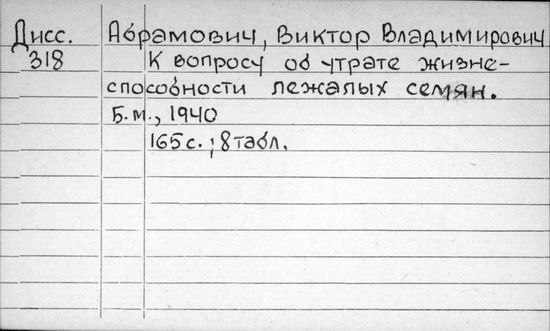 Дисс. Абрамович, Виктор Владимирович
318 К вопросу об утрате жизне-
способности лежалых семян.
Б.м., 1940
165с.; 8табл.